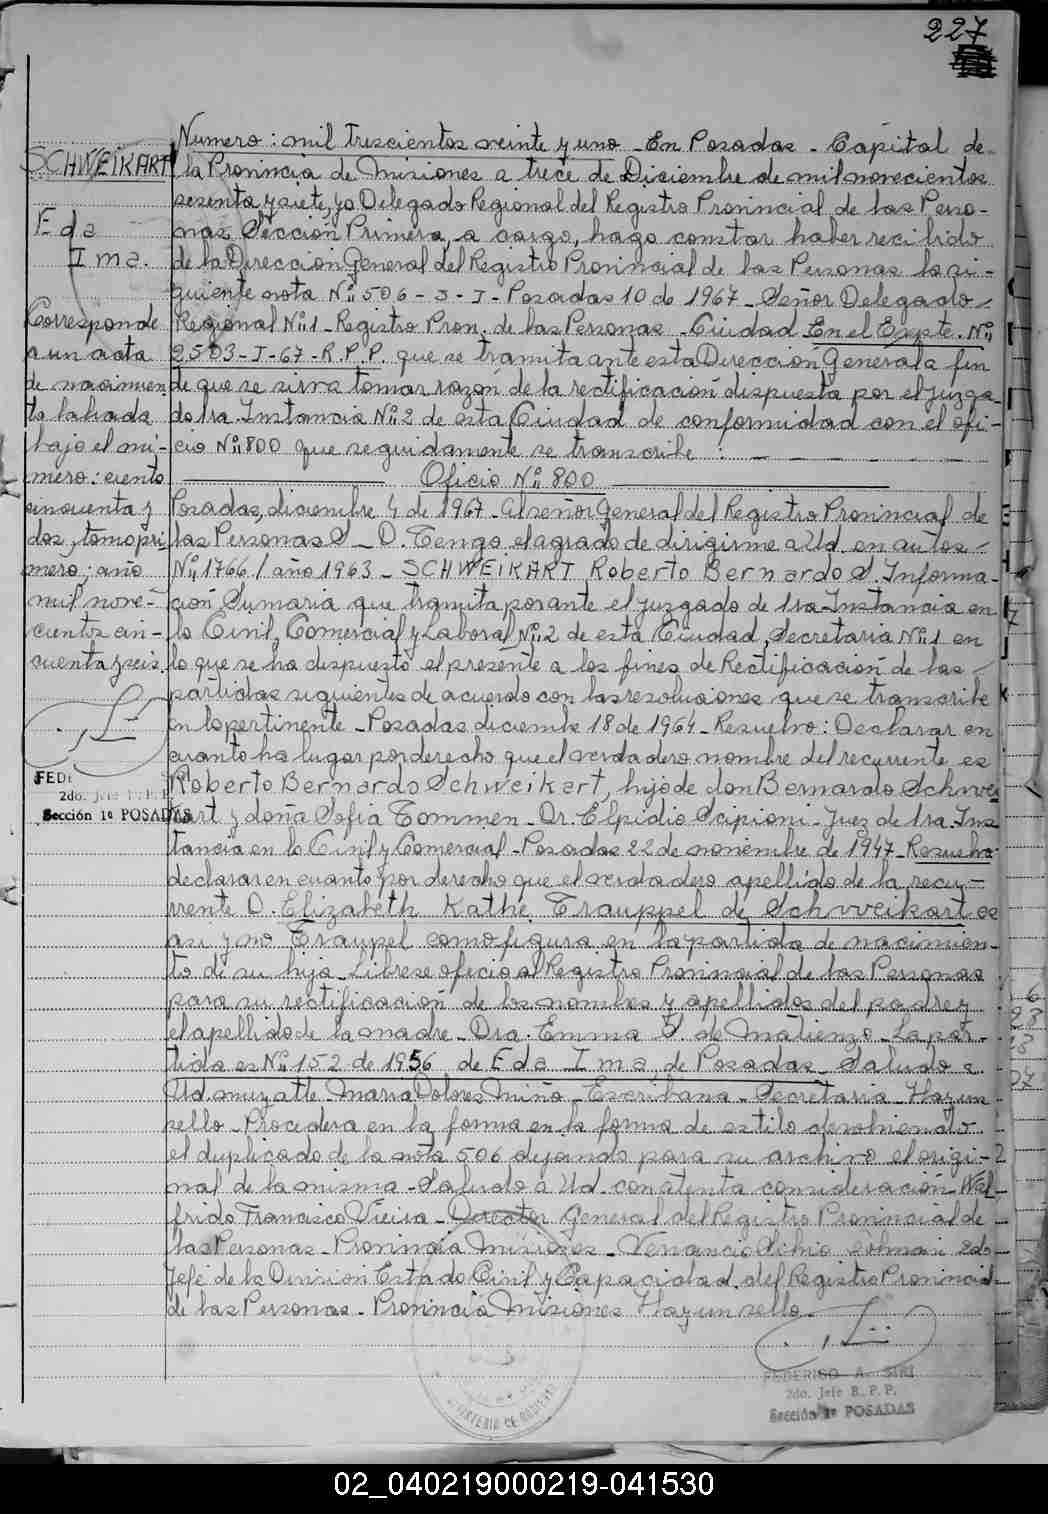 227
SCHWEIKART
Eda
Ima.
Corresponde
a un acta
de nacimien
to labrada
bajo el nú-
mero: ciento
cincuenta y
dos, tomo pri
mero; año
mil nove-
cientos cin-
cuenta y seis.
FEDE
2do. Jefe R. P. P.
Sección 1ª POSADAS
Numero: mil trescientos veinte y uno - En Posadas - Capital de
la Provincia de Misiones a trece de Diciembre de mil novecientos
sesenta y siete, yo Delegado Regional del Registro Provincial de las Perso-
nas Sección Primera, a cargo, hago constar haber recibido
de la Dirección General del Registro Provincial de las Personas la si-
guiente nota Nº 506 - J - I - Posadas 10 de 1967 - Señor Delegado
Regional Nº 1 - Registro Prov. de las Personas - Ciudad En el Expte. Nº
2503-I-67-R.P.P. que se tramita ante esta Dirección General a fin
de que se sirva tomar razón de la rectificación dispuesta por el Juzga-
do 1ra Instancia Nº 2 de esta Ciudad de conformidad con el ofi-
cio Nº 800 que seguidamente se transcribe :
Oficio Nº 800
Posadas, diciembre 4 de 1967 - Al señor General del Registro Provincial de
las Personas S - D. Tengo el agrado de dirigirme a Ud. en autos
Nº 1766 / año 1963 - SCHWEIKART Roberto Bernardo S. Informa-
ción Sumaria que tramita por ante el juzgado de 1ra Instancia en
lo Civil, Comercial y Laboral Nº 2 de esta Ciudad, Secretaria Nº 1 en
lo que se ha dispuesto el presente a los fines de Rectificación de las
partidas siguientes de acuerdo con las resoluciones que se transcribe
en lo pertinente - Posadas diciembre 18 de 1964 - Resuelvo: Declarar en
cuanto ha lugar por derecho que el verdadero nombre del recurrente es
Roberto Bernardo Schweikart, hijo de don Bernardo Schwei
kart y doña Sofía Tommen - Dr. Elpidio Scipioni - Juez de 1ra Ins
tancia en lo Civil y Comercial - Posadas 22 de noviembre de 1947 - Resuelvo
declarar en cuanto por derecho que el verdadero apellido de la recu-
rrente D. Elizabeth Kathe Trauppel de Schvveikart es
así y no Traupel como figura en la partida de nacimien-
to de su hija - Librese oficio al Registro Provincial de las Personas
para su rectificación de los nombres y apellidos del padre y
el apellido de la madre - Dra. Emma S. de Matienzo - La par-
tida es Nº 152 de 1956 de Eda Ima, de Posadas - Saludo a
Ud. muy atte. Maria Dolores Miño - Escribana - Secretaria - Hay un
sello - Procederá en la forma en la forma de estilo devolviendo
el duplicado de la nota 506 dejando para su archivo el origi-
nal de la misma - Saludo a Ud. con atenta consideración - Wal
frido Francisco Vieira - Director General del Registro Provincial de
las Personas - Provincia Misiones - Venancio 2do
Jefe de la Division Estado Civil y Capacidad del Registro Provincial
de las Personas - Provincia Misiones Hay un sello -
FEDERICO A. SIRI
2do. Jefe R. P. P.
Sección 1ª POSADAS
02_040219000219-041530